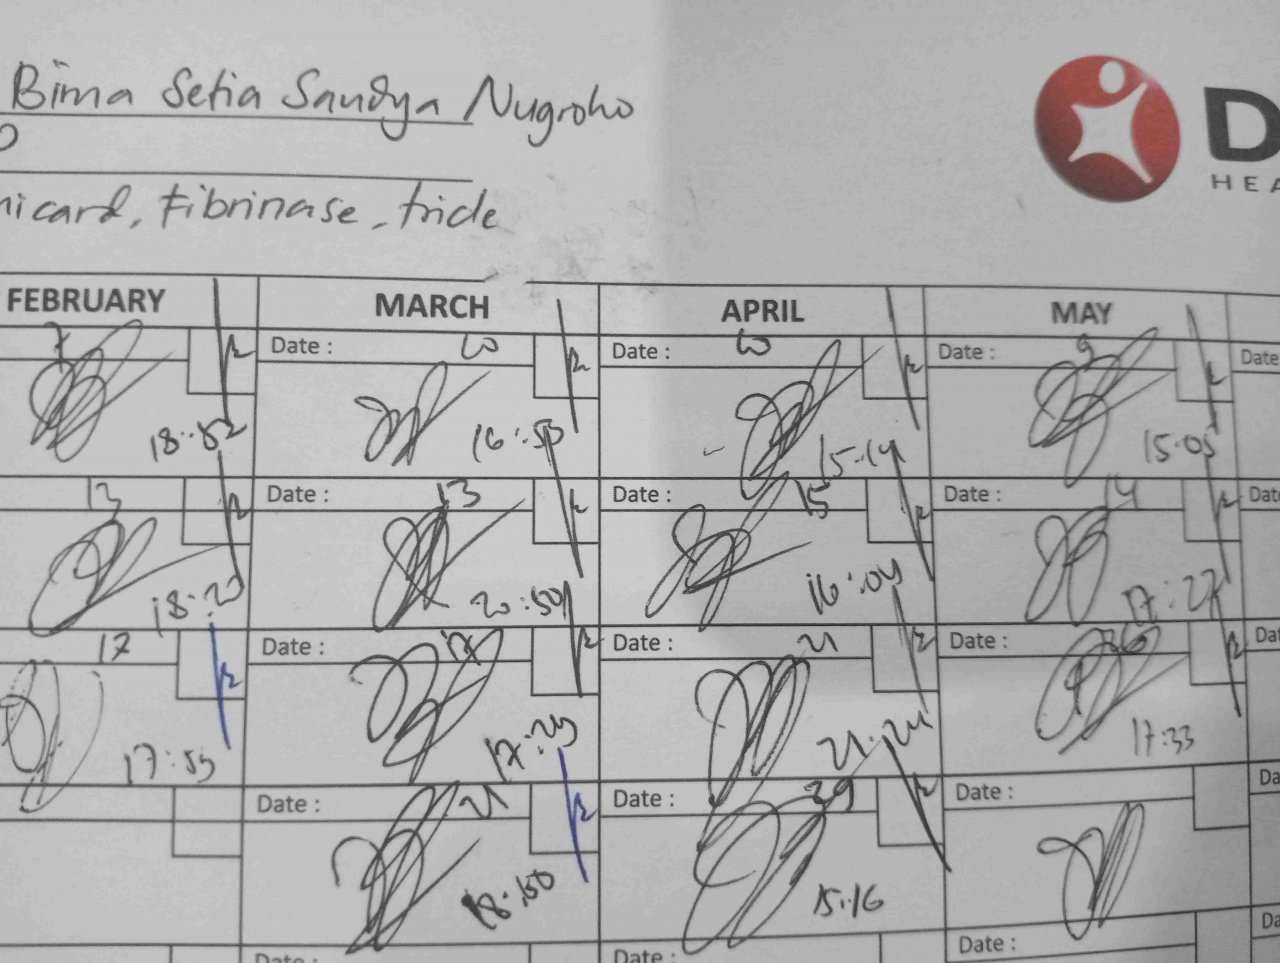 Bima Setia Sandya Nugroho
D
HEA
nicard, Fibrinase, tride
FEBRUARY MARCH APRIL MAY
7 Date : Date : Date : 9 Date
18:52 16:50 15:14 15:05
13 Date : 13 Date : 15 Date : 14 Dat
18:20 20:50 16:04 17:27
17 Date : 17 Date : 21 Date : 26 Dat
17:53 17:23 21:24 17:33
Date : 21 Date : 29 Date : Da
18:50 15:16
Date : Date : Date : Da